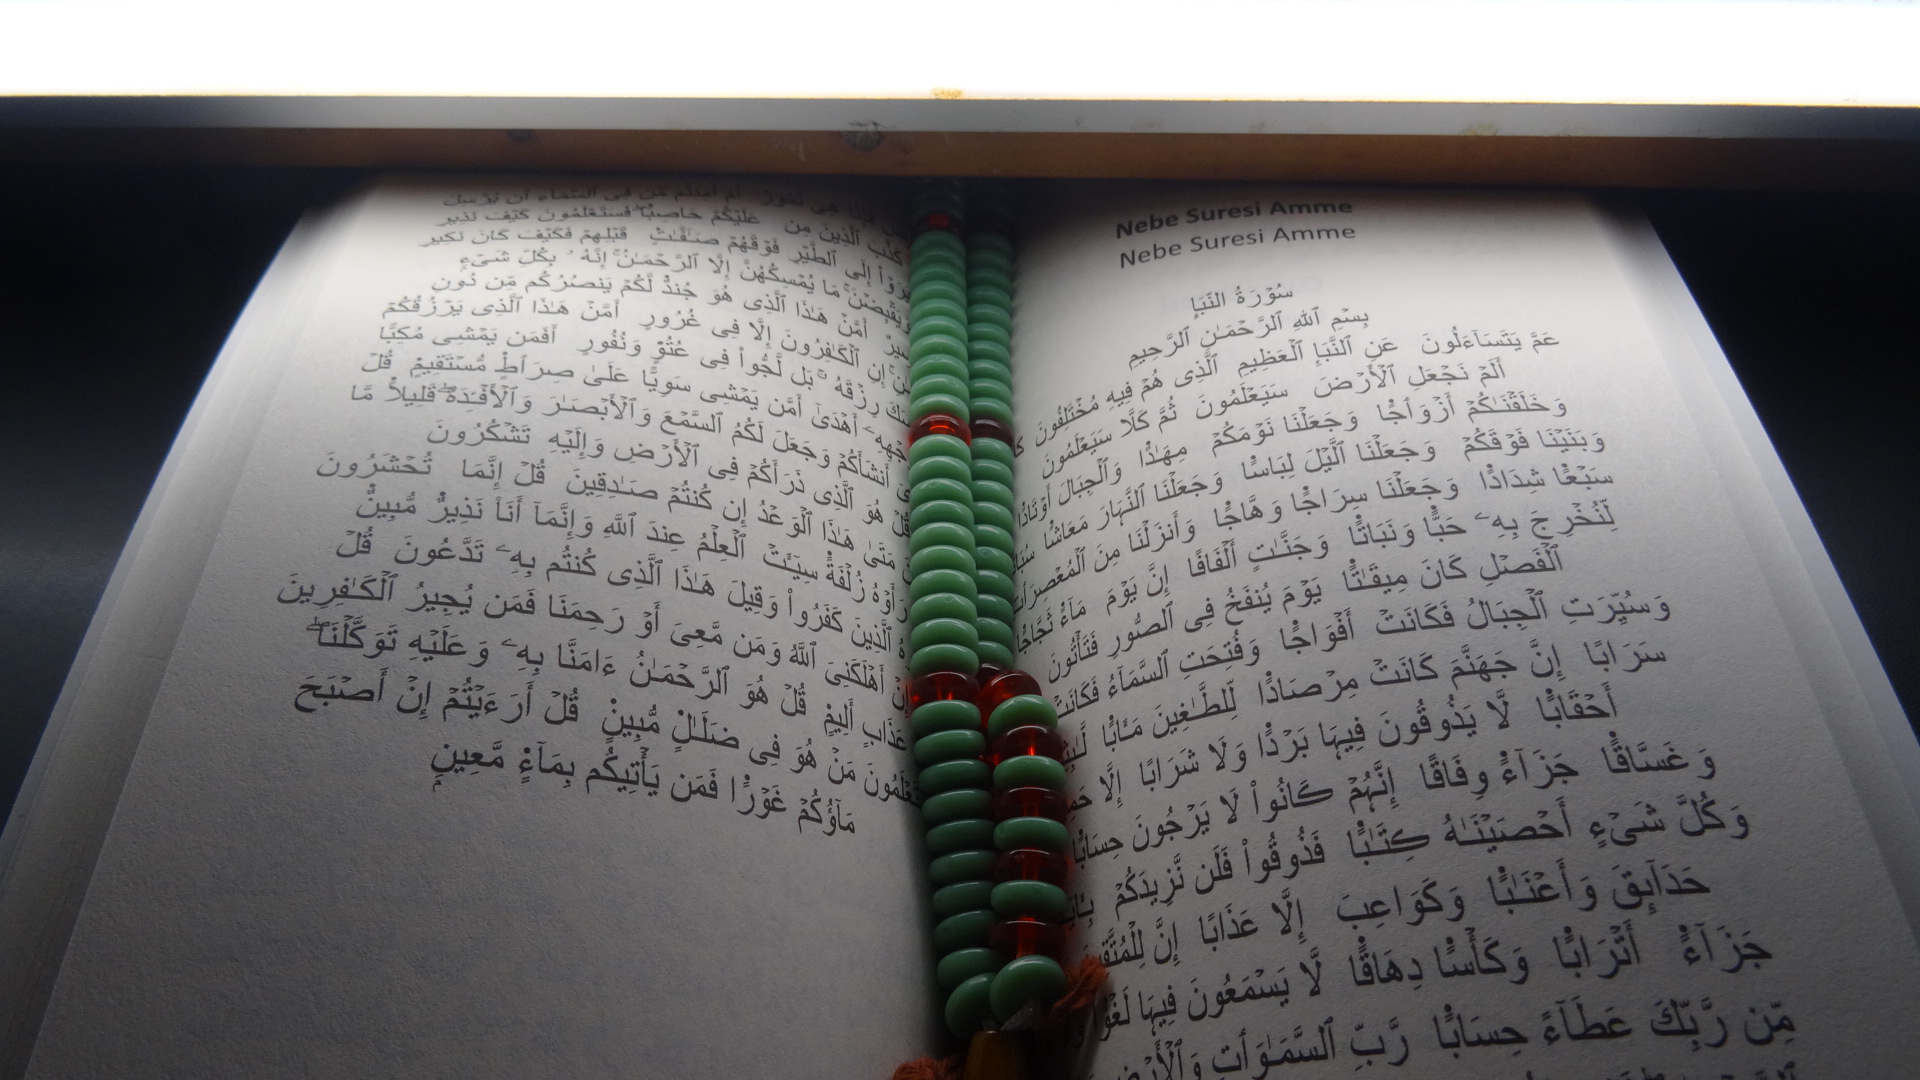 فَإِذَا هِىَ تَمُورُ أَمْ أَمِنتُم مَّن فِى ٱلسَّمَآءِ أَن يُرْسِلَ
كَذَّبَ ٱلَّذِينَ مِن عَلَيْكُمْ حَاصِبًاۖ فَسَتَعْلَمُونَ كَيْفَ نَذِيرِ
يَرَوْا۟ إِلَى ٱلطَّيْرِ فَوْقَهُمْ صَـٰٓفَّـٰتٍ قَبْلِهِمْ فَكَيْفَ كَانَ نَكِيرِ
وَيَقْبِضْنَۚ مَا يُمْسِكُهُنَّ إِلَّا ٱلرَّحْمَـٰنُۚ إِنَّهُۥ بِكُلِّ شَىْءٍ
أَمَّنْ هَـٰذَا ٱلَّذِى هُوَ جُندٌ لَّكُمْ يَنصُرُكُم مِّن دُونِ
إِنِ ٱلْكَـٰفِرُونَ إِلَّا فِى غُرُورٍ أَمَّنْ هَـٰذَا ٱلَّذِى يَرْزُقُكُمْ
رِزْقَهُۥۚ بَل لَّجُّوا۟ فِى عُتُوٍّ وَنُفُورٍ أَفَمَن يَمْشِى مُكِبًّا
أَهْدَىٰٓ أَمَّن يَمْشِى سَوِيًّا عَلَىٰ صِرَاطٍ مُّسْتَقِيمٍ قُلْ
أَنشَأَكُمْ وَجَعَلَ لَكُمُ ٱلسَّمْعَ وَٱلْأَبْصَـٰرَ وَٱلْأَفْـِٔدَةَۖ قَلِيلًا مَّا
هُوَ ٱلَّذِى ذَرَأَكُمْ فِى ٱلْأَرْضِ وَإِلَيْهِ تَشْكُرُونَ
مَتَىٰ هَـٰذَا ٱلْوَعْدُ إِن كُنتُمْ صَـٰدِقِينَ قُلْ إِنَّمَا تُحْشَرُونَ
زُلْفَةً سِيٓـَٔتْ ٱلْعِلْمُ عِندَ ٱللَّهِ وَإِنَّمَآ أَنَا۠ نَذِيرٌ مُّبِينٌ
ٱلَّذِينَ كَفَرُوا۟ وَقِيلَ هَـٰذَا ٱلَّذِى كُنتُم بِهِۦ تَدَّعُونَ قُلْ
أَهْلَكَنِىَ ٱللَّهُ وَمَن مَّعِىَ أَوْ رَحِمَنَا فَمَن يُجِيرُ ٱلْكَـٰفِرِينَ
عَذَابٍ أَلِيمٍ قُلْ هُوَ ٱلرَّحْمَـٰنُ ءَامَنَّا بِهِۦ وَعَلَيْهِ تَوَكَّلْنَاۖ
مَنْ هُوَ فِى ضَلَـٰلٍ مُّبِينٍ قُلْ أَرَءَيْتُمْ إِنْ أَصْبَحَ
مَآؤُكُمْ غَوْرًا فَمَن يَأْتِيكُم بِمَآءٍ مَّعِينٍ
Nebe Suresi Amme
Nebe Suresi Amme
سُوْرَةُ النَّبَإِ
بِسْمِ ٱللَّهِ ٱلرَّحْمَـٰنِ ٱلرَّحِيمِ
عَمَّ يَتَسَآءَلُونَ عَنِ ٱلنَّبَإِ ٱلْعَظِيمِ ٱلَّذِى هُمْ فِيهِ مُخْتَلِفُونَ
أَلَمْ نَجْعَلِ ٱلْأَرْضَ سَيَعْلَمُونَ ثُمَّ كَلَّا سَيَعْلَمُونَ
وَخَلَقْنَـٰكُمْ أَزْوَٰجًا وَجَعَلْنَا نَوْمَكُمْ مِهَـٰدًا وَٱلْجِبَالَ أَوْتَادًا
وَبَنَيْنَا فَوْقَكُمْ وَجَعَلْنَا ٱلَّيْلَ لِبَاسًا وَجَعَلْنَا ٱلنَّهَارَ مَعَاشًا
سَبْعًا شِدَادًا وَجَعَلْنَا سِرَاجًا وَهَّاجًا وَأَنزَلْنَا مِنَ ٱلْمُعْصِرَٰتِ
لِّنُخْرِجَ بِهِۦ حَبًّا وَنَبَاتًا وَجَنَّـٰتٍ أَلْفَافًا إِنَّ يَوْمَ مَآءً ثَجَّاجًا
ٱلْفَصْلِ كَانَ مِيقَـٰتًا يَوْمَ يُنفَخُ فِى ٱلصُّورِ فَتَأْتُونَ
وَسُيِّرَتِ ٱلْجِبَالُ فَكَانَتْ أَفْوَاجًا وَفُتِحَتِ ٱلسَّمَآءُ فَكَانَتْ
سَرَابًا إِنَّ جَهَنَّمَ كَانَتْ مِرْصَادًا لِّلطَّـٰغِينَ مَـَٔابًا
أَحْقَابًا لَّا يَذُوقُونَ فِيهَا بَرْدًا وَلَا شَرَابًا إِلَّا
وَغَسَّاقًا جَزَآءً وِفَاقًا إِنَّهُمْ كَانُوا۟ لَا يَرْجُونَ حِسَابًا
وَكُلَّ شَىْءٍ أَحْصَيْنَـٰهُ كِتَـٰبًا فَذُوقُوا۟ فَلَن نَّزِيدَكُمْ
حَدَآئِقَ وَأَعْنَـٰبًا وَكَوَاعِبَ إِلَّا عَذَابًا إِنَّ لِلْمُتَّقِينَ
جَزَآءً أَتْرَابًا وَكَأْسًا دِهَاقًا لَّا يَسْمَعُونَ فِيهَا لَغْوًا
مِّن رَّبِّكَ عَطَآءً حِسَابًا رَّبِّ ٱلسَّمَـٰوَٰتِ وَٱلْأَرْضِ